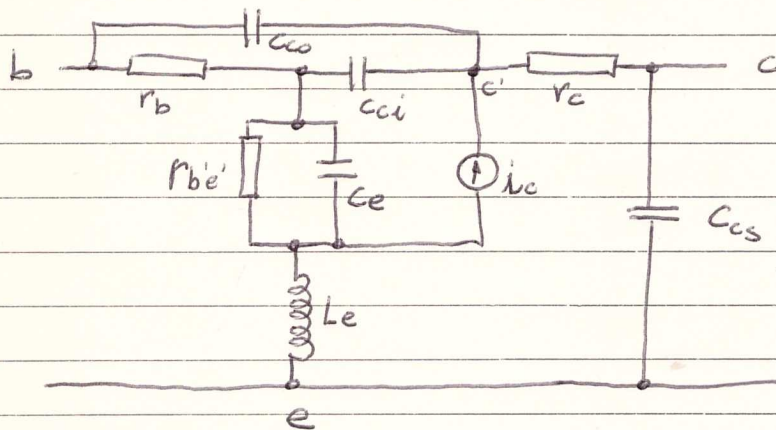 Cco
b c
rb Cci c' rc
rb'e' Ce ic Ccs
Le
e